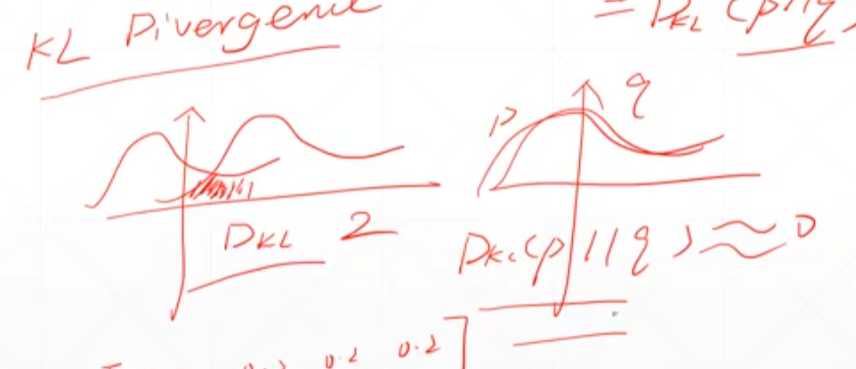 KL Divergence
= DKL (p||q)
p q
DKL 2
DKL(p||q) ≈ 0
0.2 0.2]